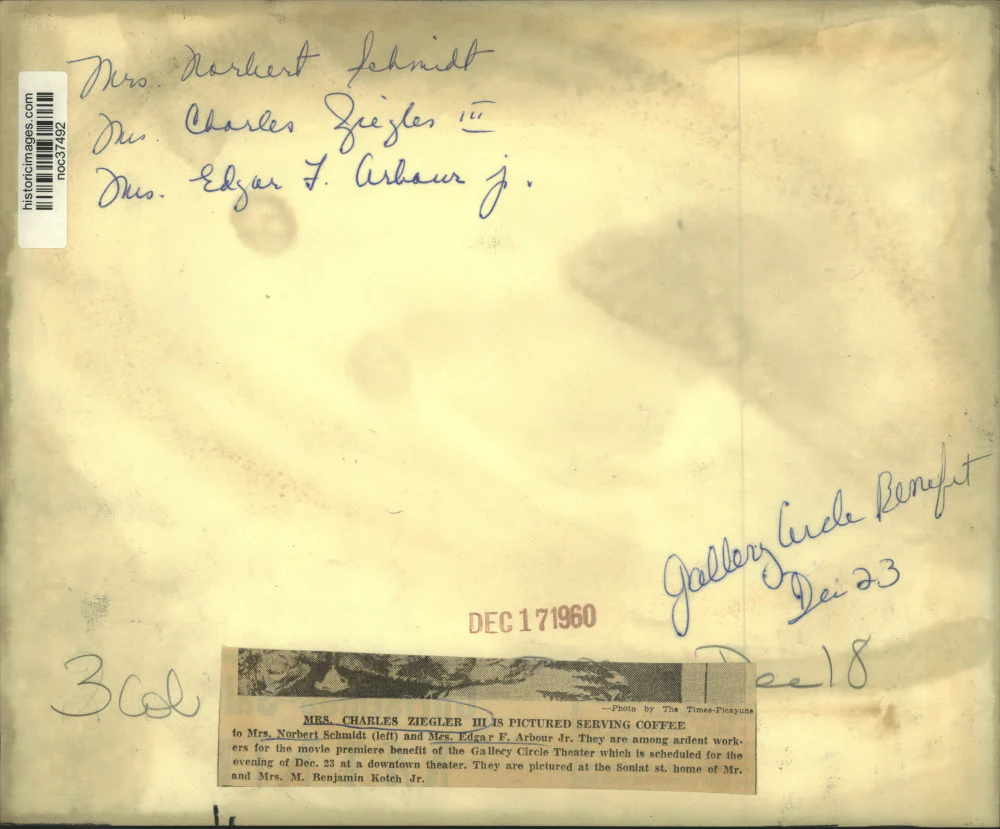 Mrs. Norbert Schmidt
Mrs. Charles Ziegler III
Mrs. Edgar F. Arbour Jr.
historicimages.com
noc37492
Gallery Circle Benefit
Dec 23
DEC 17 1960
3 Col
Dec 18
—Photo by The Times-Picayune
MRS. CHARLES ZIEGLER III IS PICTURED SERVING COFFEE
to Mrs. Norbert Schmidt (left) and Mrs. Edgar F. Arbour Jr. They are among ardent work-
ers for the movie premiere benefit of the Gallery Circle Theater which is scheduled for the
evening of Dec. 23 at a downtown theater. They are pictured at the Soniat st. home of Mr.
and Mrs. M. Benjamin Kotch Jr.